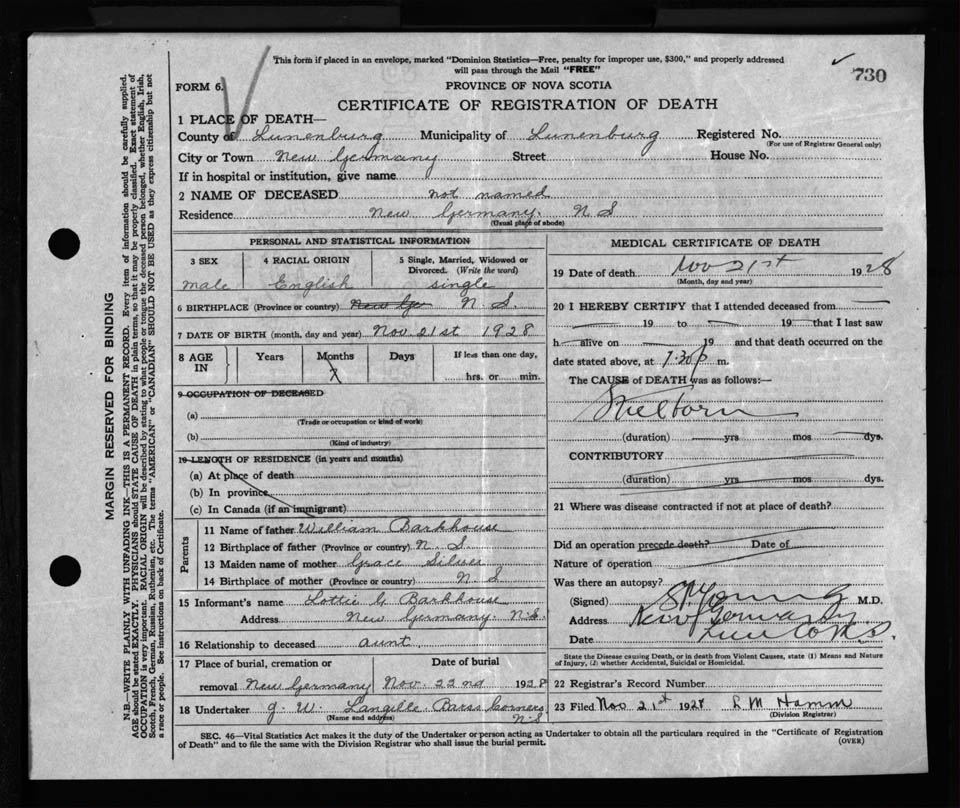 This form if placed in an envelope, marked "Dominion Statistics—Free, penalty for improper use, $300," and properly addressed
will pass through the Mail "FREE"
730
FORM 6.
PROVINCE OF NOVA SCOTIA
CERTIFICATE OF REGISTRATION OF DEATH
1 PLACE OF DEATH—
County of Lunenburg Municipality of Lunenburg Registered No.
(For use of Registrar General only)
City or Town New Germany Street House No.
If in hospital or institution, give name
2 NAME OF DECEASED not named
Residence New Germany. N S
(Usual place of abode)
PERSONAL AND STATISTICAL INFORMATION
3 SEX 4 RACIAL ORIGIN 5 Single, Married, Widowed or
Divorced. (Write the word)
male English single
6 BIRTHPLACE (Province or country) New Ge N. S.
7 DATE OF BIRTH (month, day and year) Nov. 21st 1928
8 AGE IN Years Months Days If less than one day,
7
hrs. or min.
9 OCCUPATION OF DECEASED
(a)
(Trade or occupation or kind of work)
(b)
(Kind of industry)
10 LENGTH OF RESIDENCE (in years and months)
(a) At place of death
(b) In province
(c) In Canada (if an immigrant)
Parents
11 Name of father William Barkhouse
12 Birthplace of father (Province or country) N. S
13 Maiden name of mother Grace Silver
14 Birthplace of mother (Province or country) N. S
15 Informant's name Lottie G Barkhouse
Address New Germany. N.S.
16 Relationship to deceased aunt
17 Place of burial, cremation or Date of burial
removal New Germany Nov. 22nd 1928
18 Undertaker J. W. Langille Barss Corners
(Name and address) N-S
MEDICAL CERTIFICATE OF DEATH
19 Date of death Nov 21st 1928
(Month, day and year)
20 I HEREBY CERTIFY that I attended deceased from
19 to 19 that I last saw
h alive on 19 and that death occurred on the
date stated above, at 7.30 p m.
The CAUSE of DEATH was as follows:—
Stillborn
(duration) yrs mos dys.
CONTRIBUTORY
(duration) yrs mos dys.
21 Where was disease contracted if not at place of death?
Did an operation precede death? Date of
Nature of operation
Was there an autopsy?
(Signed) Young M.D.
Address New Germany
Date Lun Co N.S.
State the Disease causing Death, or in death from Violent Causes, state (1) Means and Nature
of Injury, (2) whether Accidental, Suicidal or Homicidal.
22 Registrar's Record Number
23 Filed Nov 21st 1928 L M Hamm
(Division Registrar)
SEC. 46—Vital Statistics Act makes it the duty of the Undertaker or person acting as Undertaker to obtain all the particulars required in the "Certificate of Registration
of Death" and to file the same with the Division Registrar who shall issue the burial permit. (OVER)
MARGIN RESERVED FOR BINDING
N.B.—WRITE PLAINLY WITH UNFADING INK—THIS IS A PERMANENT RECORD. Every item of information should be carefully supplied.
AGE should be stated EXACTLY. PHYSICIANS should STATE CAUSE OF DEATH in plain terms, so that it may be properly classified. Exact statement of
OCCUPATION is very important. RACIAL ORIGIN will be described by stating to what people or tongue the deceased person belonged, whether English, Irish,
Scotch, French, German, Russian, Ruthenian, etc. The terms "AMERICAN" or "CANADIAN" SHOULD NOT BE USED as they express citizenship but not
a race or people. See instructions on back of Certificate.